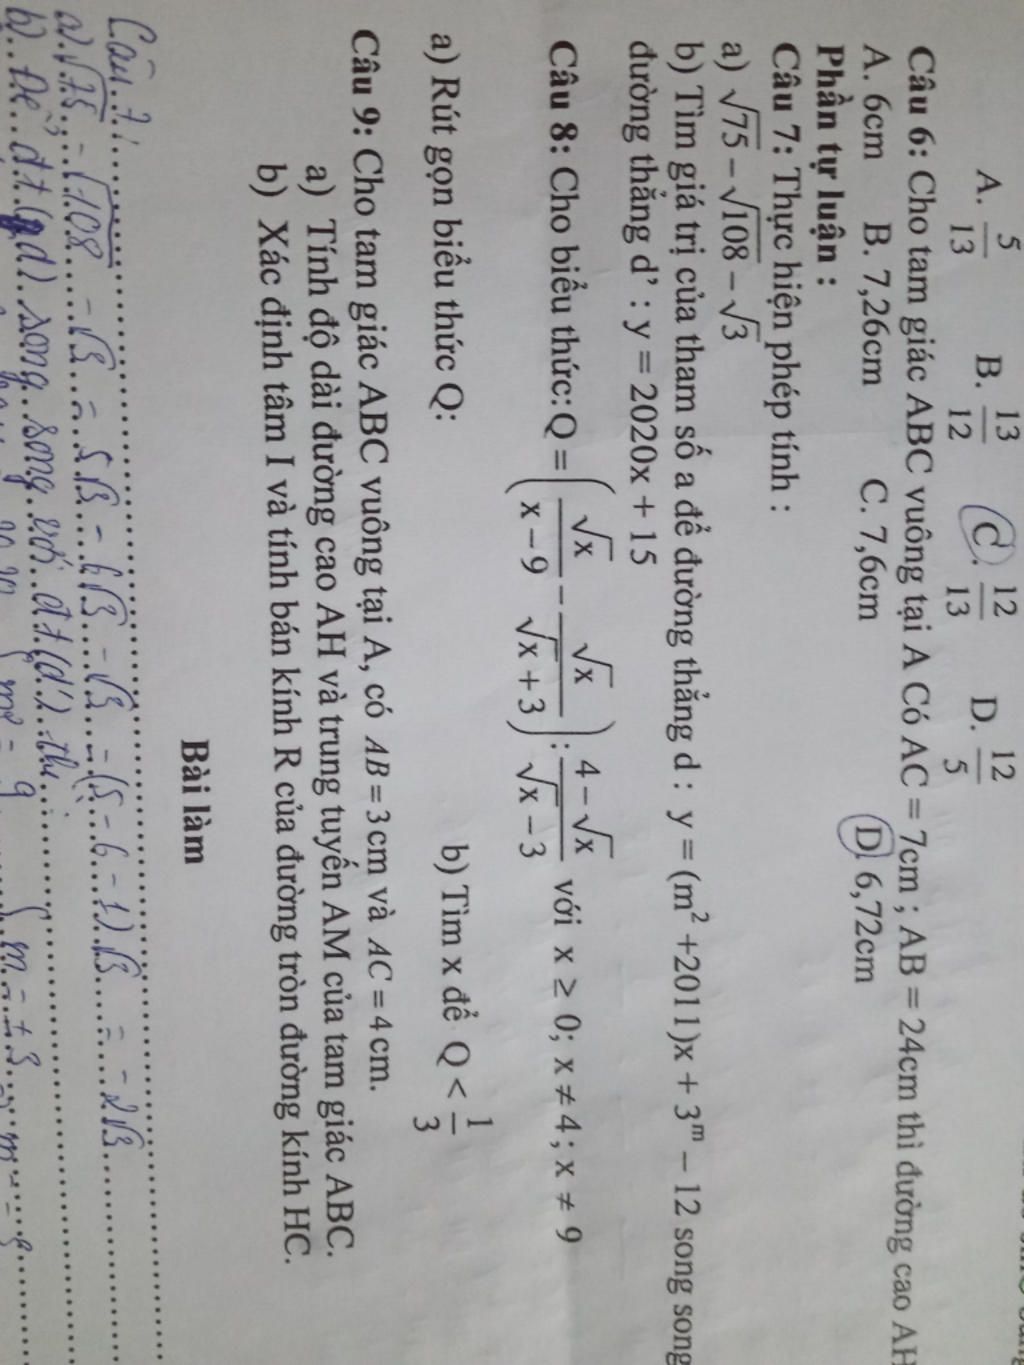 A. 5/13 B. 13/12 C. 12/13 D. 12/5
Câu 6: Cho tam giác ABC vuông tại A Có AC = 7cm ; AB = 24cm thì đường cao AH
A. 6cm B. 7,26cm C. 7,6cm D. 6,72cm
Phần tự luận :
Câu 7: Thực hiện phép tính :
a) √75 − √108 − √3
b) Tìm giá trị của tham số a để đường thẳng d : y = (m² +2011)x + 3ᵐ − 12 song song
đường thẳng d’ : y = 2020x + 15
Câu 8: Cho biểu thức: Q = (√x/(x−9) − √x/(√x+3)) : (4−√x)/(√x−3) với x ≥ 0; x ≠ 4; x ≠ 9
a) Rút gọn biểu thức Q: b) Tìm x để Q < 1/3
Câu 9: Cho tam giác ABC vuông tại A, có AB = 3cm và AC = 4cm.
a) Tính độ dài đường cao AH và trung tuyến AM của tam giác ABC.
b) Xác định tâm I và tính bán kính R của đường tròn đường kính HC.
Bài làm
Câu 7:
a) √75 − √108 − √3 = 5√3 − 6√3 − √3 = (5 − 6 − 1)√3 = −2√3
b) Để đt (d) song song với đt (d') thì
m² = 9 m = ±3